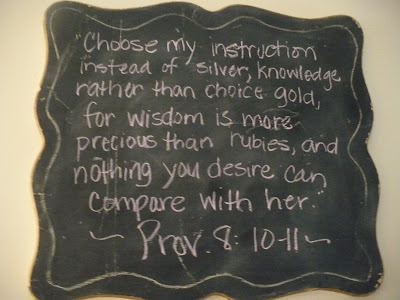 "Choose my instruction
instead of silver, knowledge
rather than choice gold,
for wisdom is more
precious than rubies, and
nothing you desire can
compare with her."
~ Prov. 8:10-11 ~